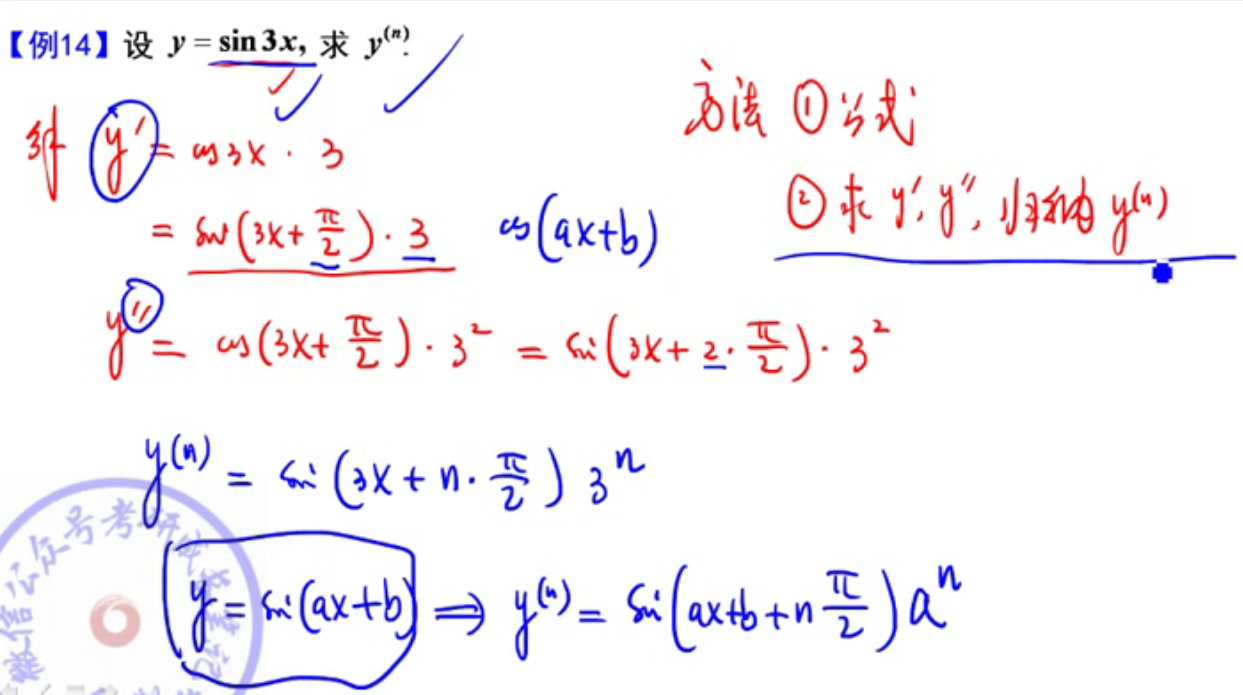 【例14】设 y = sin 3x, 求 y⁽ⁿ⁾.
解 y′ = cos3x · 3
= sin(3x+π/2) · 3
y″ = cos(3x+π/2) · 3² = sin(3x+2·π/2) · 3²
y⁽ⁿ⁾ = sin(3x+n·π/2) 3ⁿ
y = sin(ax+b) ⟹ y⁽ⁿ⁾ = sin(ax+b+nπ/2)aⁿ
cos(ax+b)
方法 ① 公式
② 求 y′, y″, 归纳 y⁽ⁿ⁾
公众号考研